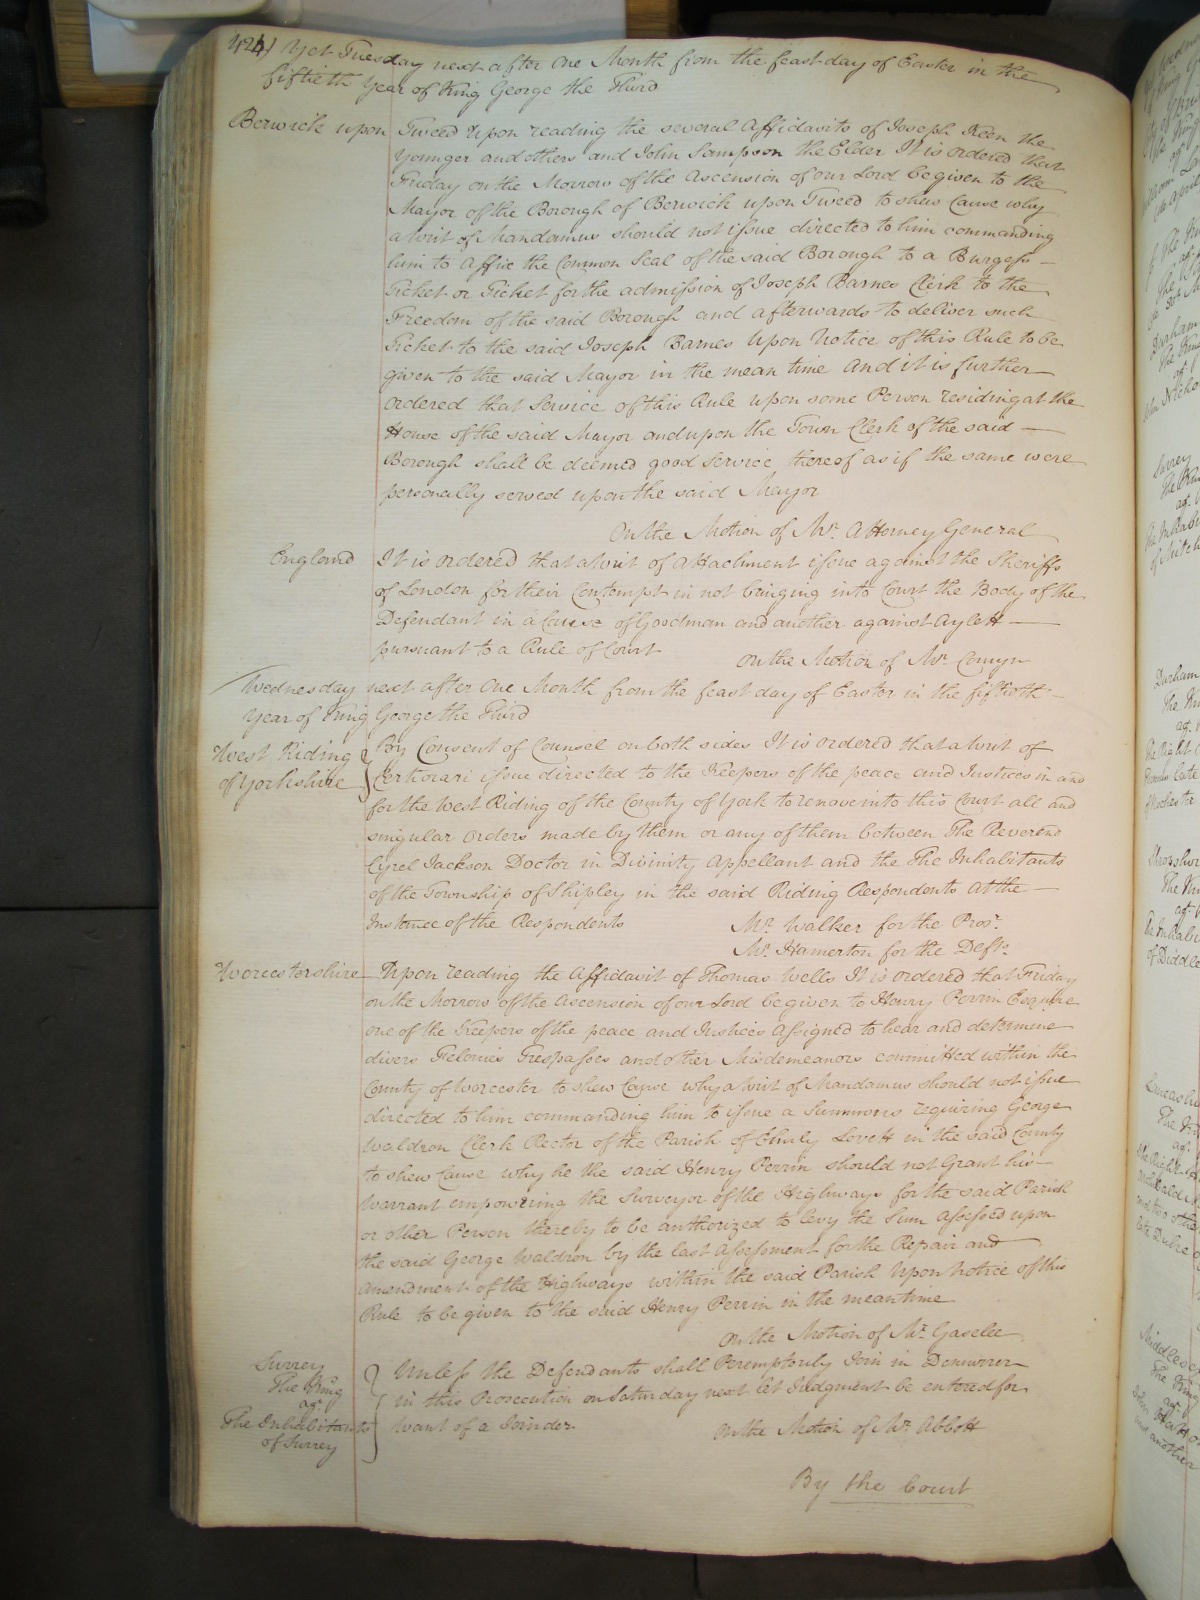 424) Yet Tuesday next after One Month from the feast day of Easter in the
fiftieth Year of King George the Third
Berwick upon Tweed Upon reading the several Affidavits of Joseph Keen the
Younger and others and John Sampson the Elder It is ordered that
Friday on the Morrow of the Ascension of our Lord be given to the
Mayor of the Borough of Berwick upon Tweed to shew Cause why
a Writ of Mandamus should not issue directed to him commanding
him to Affix the Common Seal of the said Borough to a Burgess
Ticket or Ticket for the admission of Joseph Barnes Clerk to the
Freedom of the said Borough and afterwards to deliver such
Ticket to the said Joseph Barnes Upon Notice of this Rule to be
given to the said Mayor in the mean time And it is further
Ordered that Service of this Rule upon some Person residing at the
House of the said Mayor and upon the Town Clerk of the said
Borough shall be deemed good Service thereof as if the same were
personally served upon the said Mayor
On the Motion of Mr. Attorney General
England It is ordered that a Writ of Attachment issue against the Sheriffs
of London for their Contempt in not bringing into Court the Body of the
Defendant in a Cause of Goodman and another against Aylett
pursuant to a Rule of Court
On the Motion of Mr. Comyn
Wednesday next after One Month from the feast day of Easter in the fiftieth
Year of King George the Third
West Riding of Yorkshire By Consent of Counsel on both sides It is ordered that a Writ of
Certiorari issue directed to the Keepers of the peace and Justices in and
for the West Riding of the County of York to remove into this Court all and
singular Orders made by them or any of them between The Reverend
Cyrel Jackson Doctor in Divinity Appellant and the The Inhabitants
of the Township of Shipley in the said Riding Respondents At the
Instance of the Respondents
Mr. Walker for the Pros.
Mr. Hamerton for the Defts.
Worcestershire Upon reading the Affidavit of Thomas Wells It is ordered that Friday
on the Morrow of the Ascension of our Lord be given to Henry Perrin Esquire
one of the Keepers of the peace and Justices Assigned to hear and determine
divers Felonies Trespasses and other Misdemeanors committed within the
County of Worcester to shew Cause why a Writ of Mandamus should not issue
directed to him commanding him to issue a Summons requiring George
Waldron Clerk Rector of the Parish of Elmly Lovett in the said County
to shew Cause why he the said Henry Perrin should not Grant his
Warrant empowering the Surveyor of the Highways for the said Parish
or other Person thereby to be authorized to levy the Sum Assessed upon
the said George Waldron by the last Assessment for the Repair and
Amendment of the Highways within the said Parish Upon Notice of this
Rule to be given to the said Henry Perrin in the mean time
On the Motion of Mr. Gaselee
Surrey
The King
agt.
The Inhabitants
of Surrey
Unless the Defendants shall Peremptorily Join in Demurrer
in this Prosecution on Saturday next let Judgment be entered for
want of a Joinder
On the Motion of Mr. Abbott
By the Court